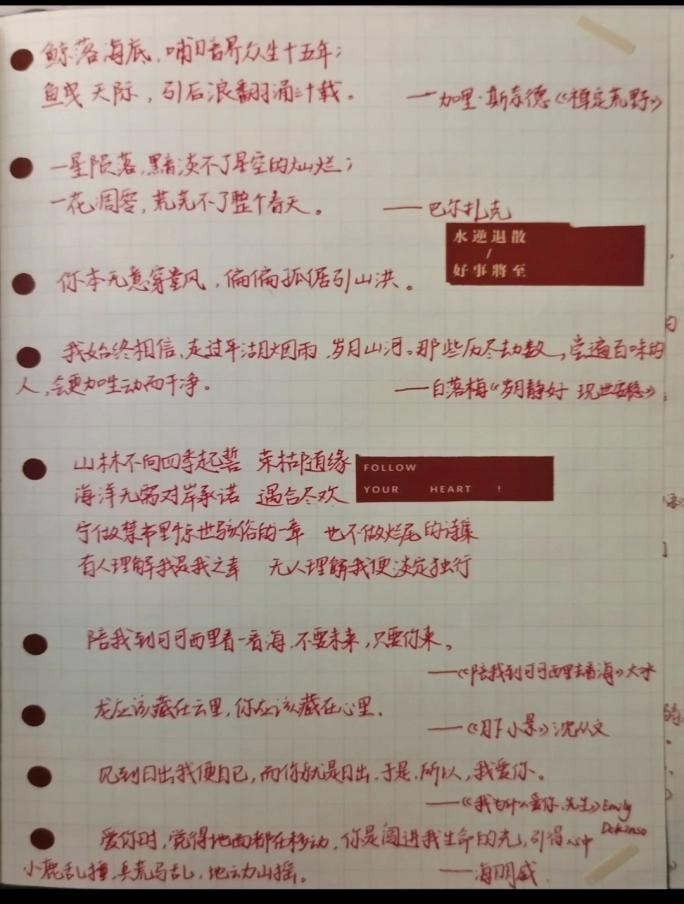 鲸落海底,哺暗界众生十五年;
鱼曳天际,引后浪翻涌三十载。
——加里·斯奈德《禅定荒野》
一星陨落,黯淡不了星空的灿烂;
一花凋零,荒芜不了整个春天。
——巴尔扎克
水逆退散
/
好事將至
你本无意穿堂风,偏偏孤倨引山洪。
我始终相信,走过平湖烟雨,岁月山河。那些历尽劫数,尝遍百味的
人,会更加生动而干净。
——白落梅《岁月静好 现世安稳》
山林不向四季起誓 荣枯随缘
海洋无需对岸承诺 遇合尽欢
FOLLOW
YOUR HEART !
宁做禁书里惊世骇俗的一章 也不做烂尾的诗集
有人理解我是我之幸 无人理解我便淡定独行
陪我到可可西里看一看海,不要未来,只要你来。
——《陪我到可可西里去看海》大冰
龙应该藏在云里,你应该藏在心里。
——《月下小景》沈从文
见到日出我便自已,而你就是日出,于是,所以,我爱你。
——《我为什么爱你,先生》Emily
爱你时,觉得地面都在移动,你是闯进我生命的光,引得心中
小鹿乱撞,兵荒马乱,地动山摇。
——海明威